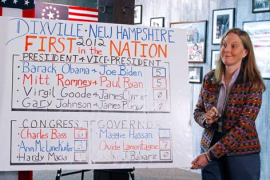 DIXVILLE-NEW HAMPSHIRE
FIRST 2012 in the NATION
PRESIDENT & VICE-PRESIDENT
Barack Obama & Joe Biden 5
Mitt Romney & Paul Ryan 5
Virgil Goode & James
Gary Johnson & James P.
CONGRESS GOVERNOR
Charles Bass Maggie Hassan
Ann McLane Kuster Ovide Lamontagne
Hardy Macia Babiarz